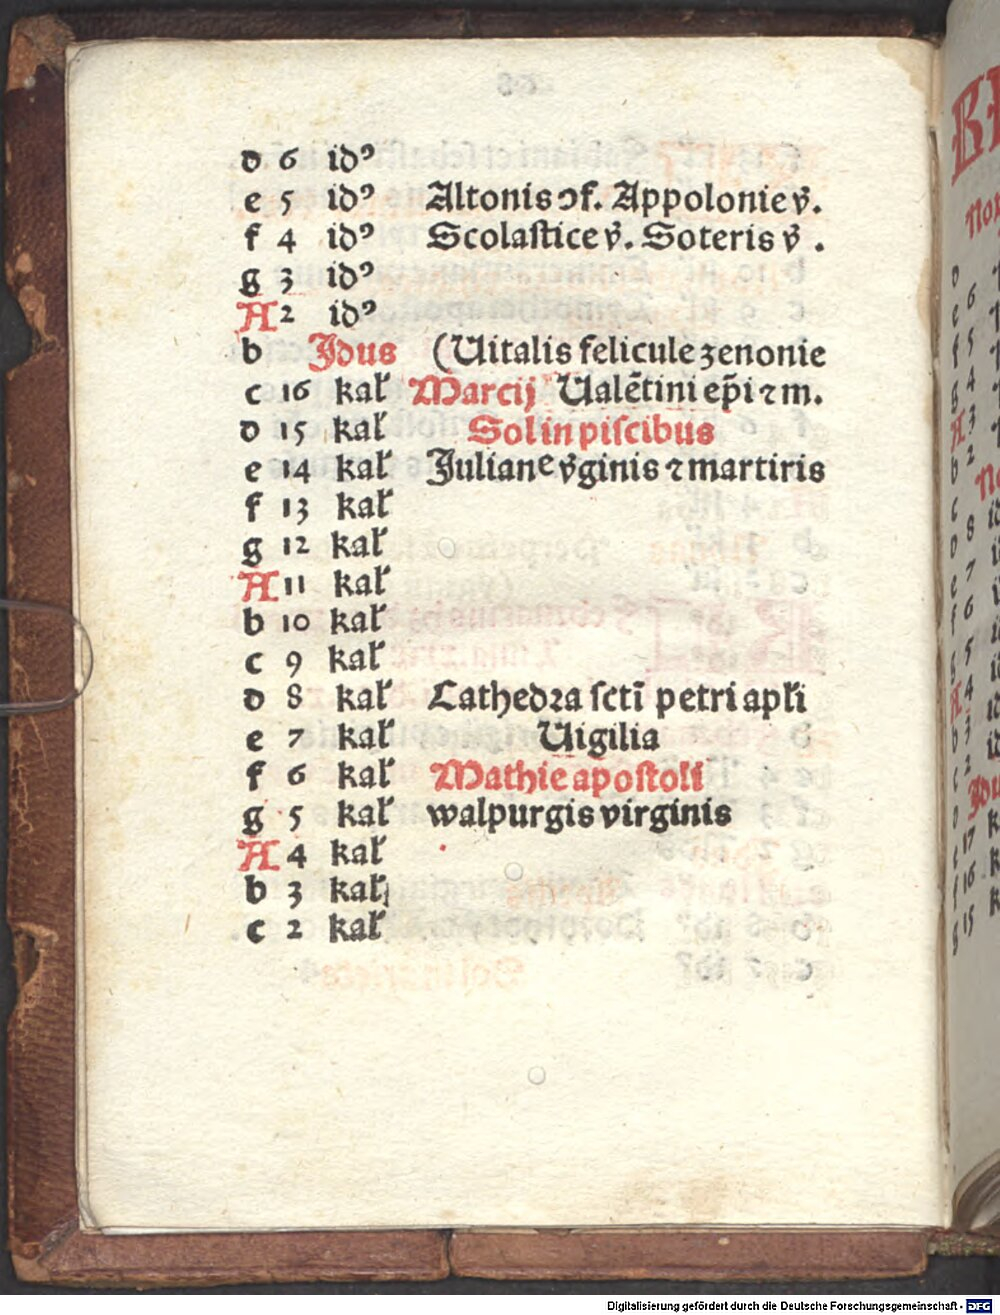 d 6 idꝰ
e 5 idꝰ Altonis ɔf. Appolonie v̄.
f 4 idꝰ Scolastice v̄. Soteris v̄.
g 3 idꝰ
A 2 idꝰ
b Idus (Uitalis felicule zenonie
c 16 kal' Marcij Ualētini ep̄i ⁊ m.
d 15 kal' Sol in piscibus
e 14 kal' Juliane v̄ginis ⁊ martiris
f 13 kal'
g 12 kal'
A 11 kal'
b 10 kal'
c 9 kal'
d 8 kal' Cathedra sctī petri apl'i
e 7 kal' Uigilia
f 6 kal' Mathie apostoli
g 5 kal' walpurgis virginis
A 4 kal'
b 3 kal'
c 2 kal'
d 6
e 5
f 5
g 4
A 3
b 2
c 8
d 7
e 6
f 5
A 4
b 3
c 2
17 k
f 16 k
g 15 k
Digitalisierung gefördert durch die Deutsche Forschungsgemeinschaft - DFG